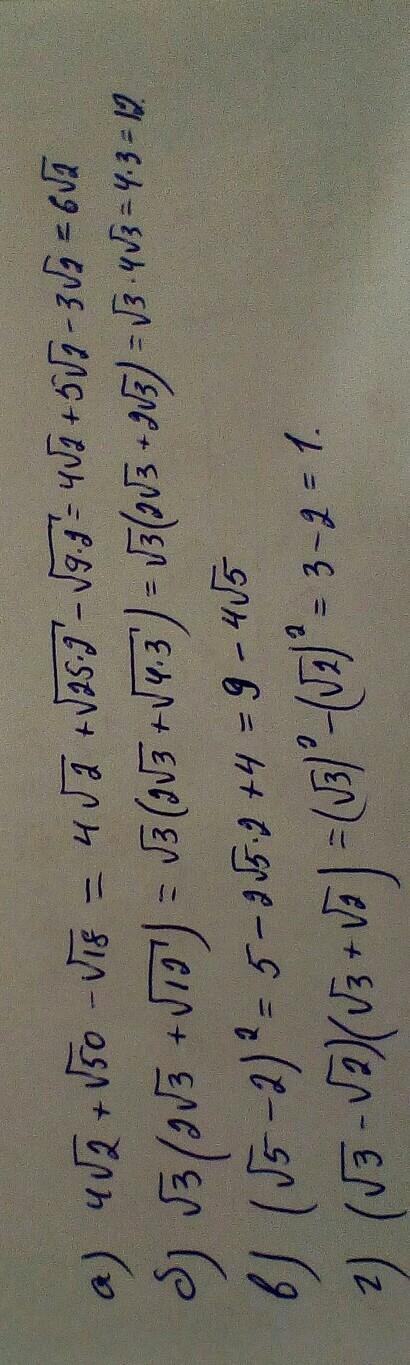 а) 4√2 + √50 - √18 = 4√2 + √25·2 - √9·2 = 4√2 + 5√2 - 3√2 = 6√2
б) √3(2√3 + √12) = √3(2√3 + √4·3) = √3(2√3 + 2√3) = √3·4√3 = 4·3 = 12.
в) (√5 - 2)² = 5 - 2√5·2 + 4 = 9 - 4√5
г) (√3 - √2)(√3 + √2) = (√3)² - (√2)² = 3 - 2 = 1.